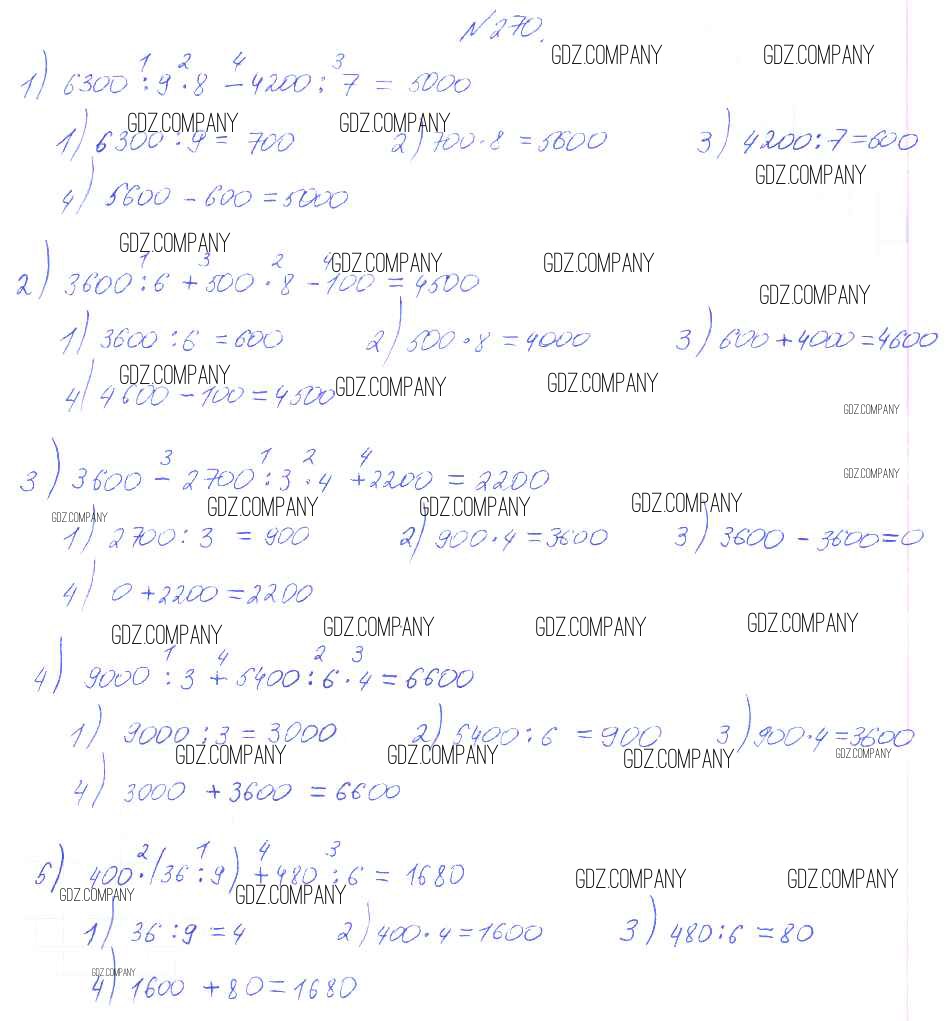 №270.
GDZ.COMPANY GDZ.COMPANY
1 2 4 3
1) 6300 : 9 · 8 - 4200 : 7 = 5000
GDZ.COMPANY GDZ.COMPANY
1) 6300 : 9 = 700 2) 700 · 8 = 5600 3) 4200 : 7 = 600
GDZ.COMPANY
4) 5600 - 600 = 5000
GDZ.COMPANY
1 3 2 4
GDZ.COMPANY GDZ.COMPANY
2) 3600 : 6 + 500 · 8 - 100 = 4500
GDZ.COMPANY
1) 3600 : 6 = 600 2) 500 · 8 = 4000 3) 600 + 4000 = 4600
GDZ.COMPANY GDZ.COMPANY GDZ.COMPANY
4) 4600 - 100 = 4500
GDZ.COMPANY
3 1 2 4
3) 3600 - 2700 : 3 · 4 + 2200 = 2200
GDZ.COMPANY
GDZ.COMPANY GDZ.COMPANY GDZ.COMPANY GDZ.COMPANY
1) 2700 : 3 = 900 2) 900 · 4 = 3600 3) 3600 - 3600 = 0
4) 0 + 2200 = 2200
GDZ.COMPANY GDZ.COMPANY GDZ.COMPANY GDZ.COMPANY
1 4 2 3
4) 9000 : 3 + 5400 : 6 · 4 = 6600
1) 9000 : 3 = 3000 2) 5400 : 6 = 900 3) 900 · 4 = 3600
GDZ.COMPANY GDZ.COMPANY GDZ.COMPANY GDZ.COMPANY
4) 3000 + 3600 = 6600
2 1 4 3
5) 400 · (36 : 9) + 480 : 6 = 1680
GDZ.COMPANY GDZ.COMPANY GDZ.COMPANY GDZ.COMPANY
1) 36 : 9 = 4 2) 400 · 4 = 1600 3) 480 : 6 = 80
GDZ.COMPANY
4) 1600 + 80 = 1680